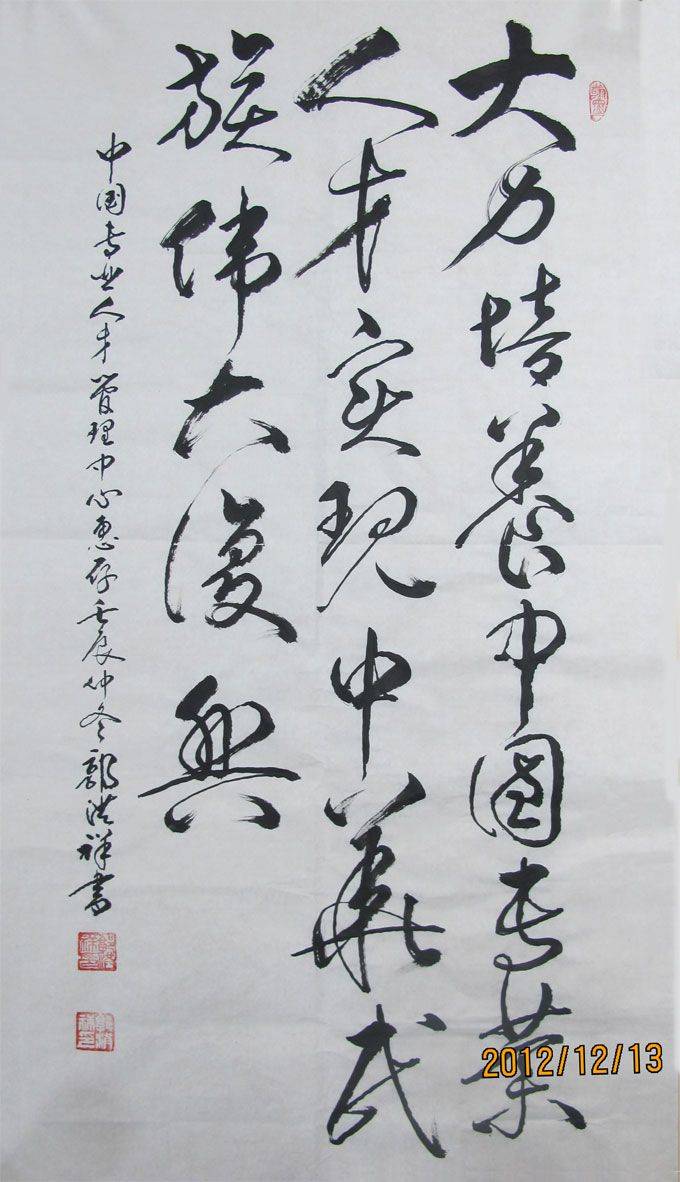 大力培養中國专業
人才实现中華民
族偉大復興
中国专业人才管理中心惠存壬辰仲冬洪祥書
2012/12/13